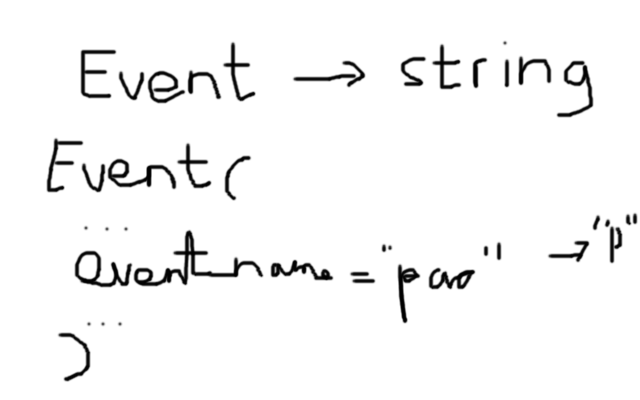 Event → string
Event(
...
event_name = "pao" → "p"
...
)